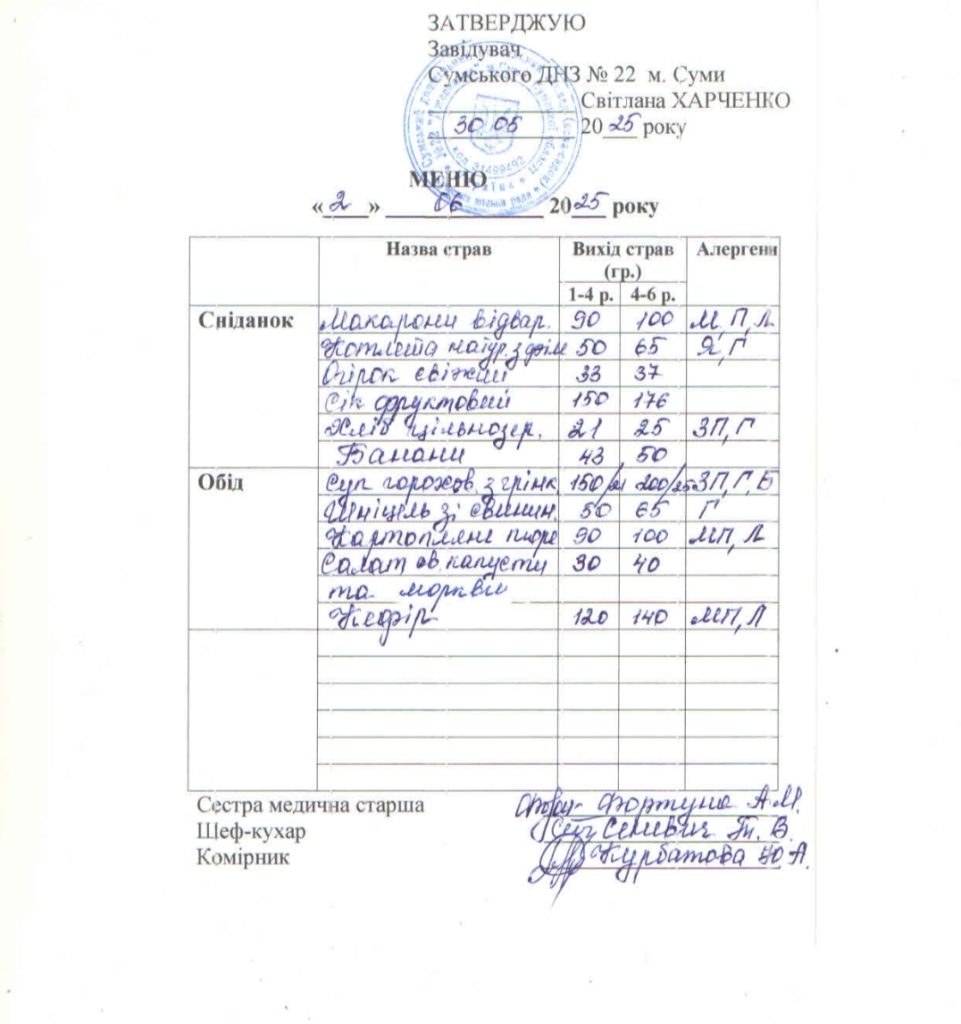 ЗАТВЕРДЖУЮ
Завідувач
Сумського ДНЗ № 22 м. Суми
Світлана ХАРЧЕНКО
30 05 2025 року
МЕНЮ
«2» 06 2025 року
Назва страв Вихід страв (гр.) Алергени
1-4 р. 4-6 р.
Сніданок Макарони відвар. 90 100 М, П, Л
Котлета натур. з 50 65 Я, Г
Огірок свіжий 33 37
Сік фруктовий 150 176
Хліб цільнозер. 21 25 ЗП, Г
Банани 43 50
Обід Суп горохов. з грінк. 150/21 200/25 ЗП, Г, Б
Шніцель зі свинин. 50 65 Г
Картопляне пюре 90 100 МП, Л
Салат ов. капусти 30 40
та моркви
Кефір 120 140 МП, Л
Сестра медична старша Фортуна А.М.
Шеф-кухар Сеневич Т. В.
Комірник Курбатова Ю.А.